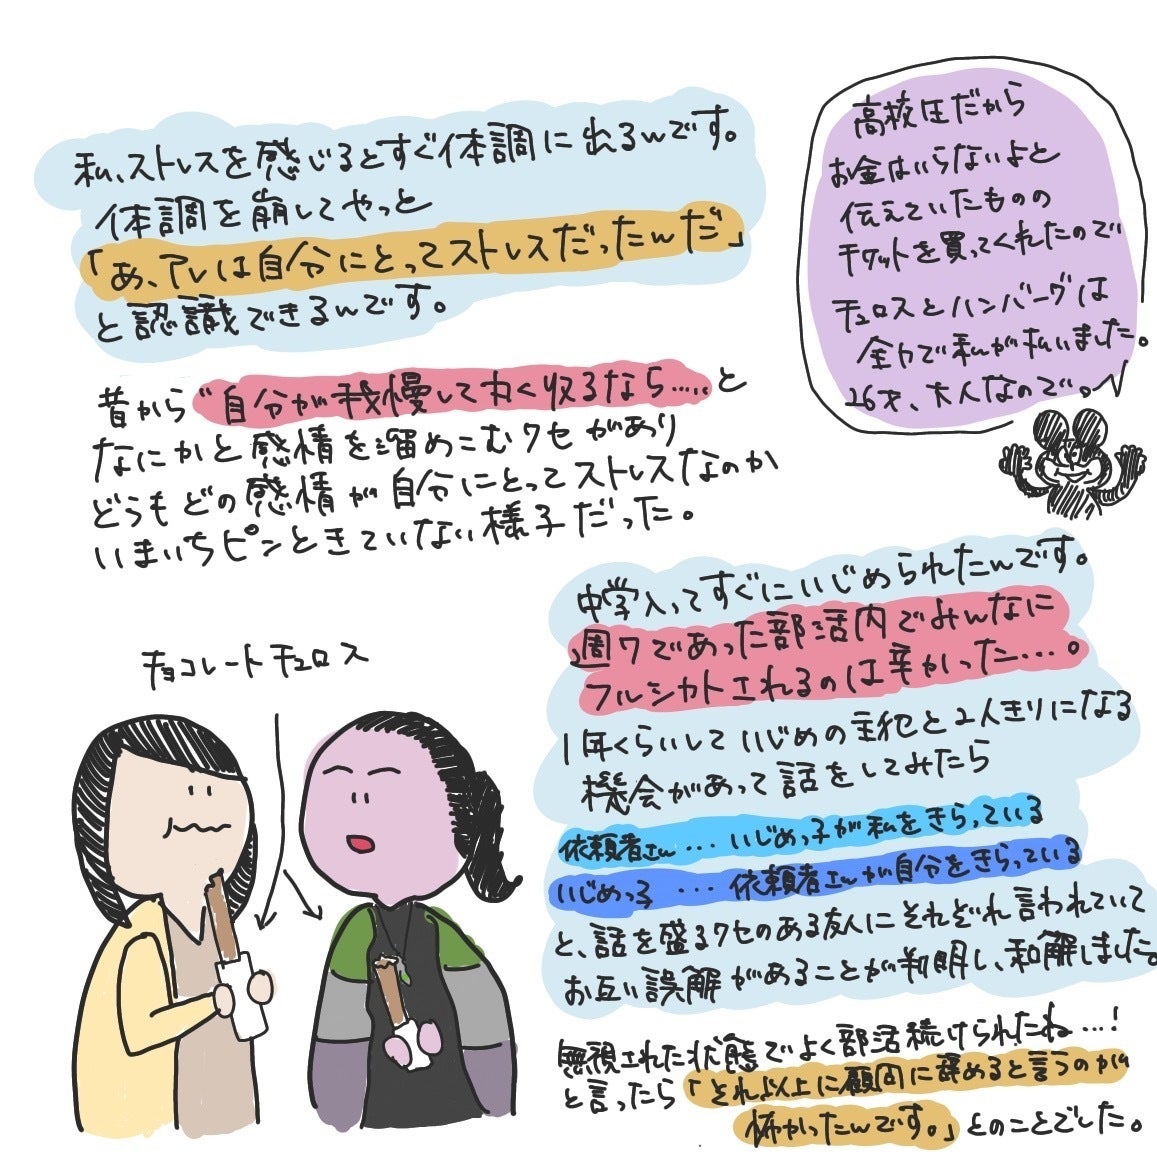 私、ストレスを感じるとすぐ体調に出るんです。
体調を崩してやっと
「あ、アレは自分にとってストレスだったんだ」
と認識できるんです。
昔から“自分が我慢して丸く収るなら.....と
なにかと感情を溜めこむクセがあり
どうもどの感情が自分にとってストレスなのか
いまいちピンときていない様子だった。
高校生だから
お金はいらないよと
伝えていたものの
チケットを買ってくれたので
チュロスとハンバーグは
全力で私が払いました。
26才、大人なので。
チョコレートチュロス
中学入ってすぐにいじめられたんです。
週7であった部活内でみんなに
フルシカトされるのは辛かった....。
1年くらいしていじめの主犯と2人きりになる
機会があって話をしてみたら
依頼者さん...いじめっ子が私をきらっている
いじめっ子 ...依頼者さんが自分をきらっている
と、話を盛るクセのある友人にそれぞれ言われていて
お互い誤解があることが判明し、和解しました。
無視された状態でよく部活続けられたね...!
と言ったら「それ以上に顧問に辞めると言うのが
怖かったんです。」とのことでした。